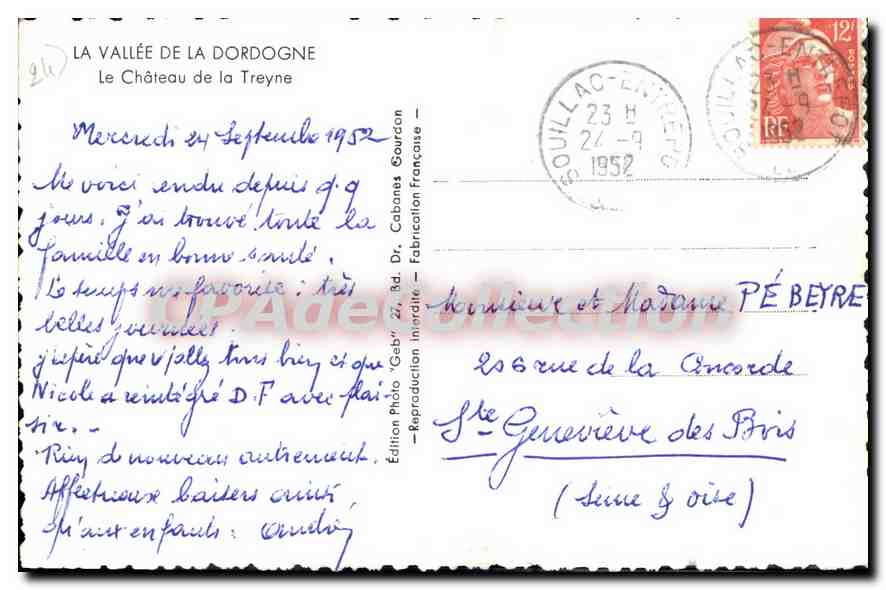 LA VALLÉE DE LA DORDOGNE
Le Château de la Treyne
24
Mercredi 24 Septembre 1952
Me voici endu depuis q.q
jours. J'ai trouvé toute la
famille en bonne santé.
Le temps me favorise : très
belles journées.
J'espère que v/ allez tous bien et que
Nicole a réintégré D.F avec plai-
sir. -
Rien de nouveau autrement.
Affectueux baisers ainsi
qu'aux enfants : André
Édition Photo "Geb" 27, Bd. Dr. Cabanes Gourdon
—Reproduction interdite — Fabrication Française—
SOUILLAC-ENTREPOT
23 H
24 -9
1952
SOUILLAC-ENTREPOT
23 H
24 -9
1952
12F
RF
Monsieur et Madame PÉBEYRE
206 rue de la Concorde
Ste Geneviève des Bois
(Seine & Oise)
CPAdeCollection